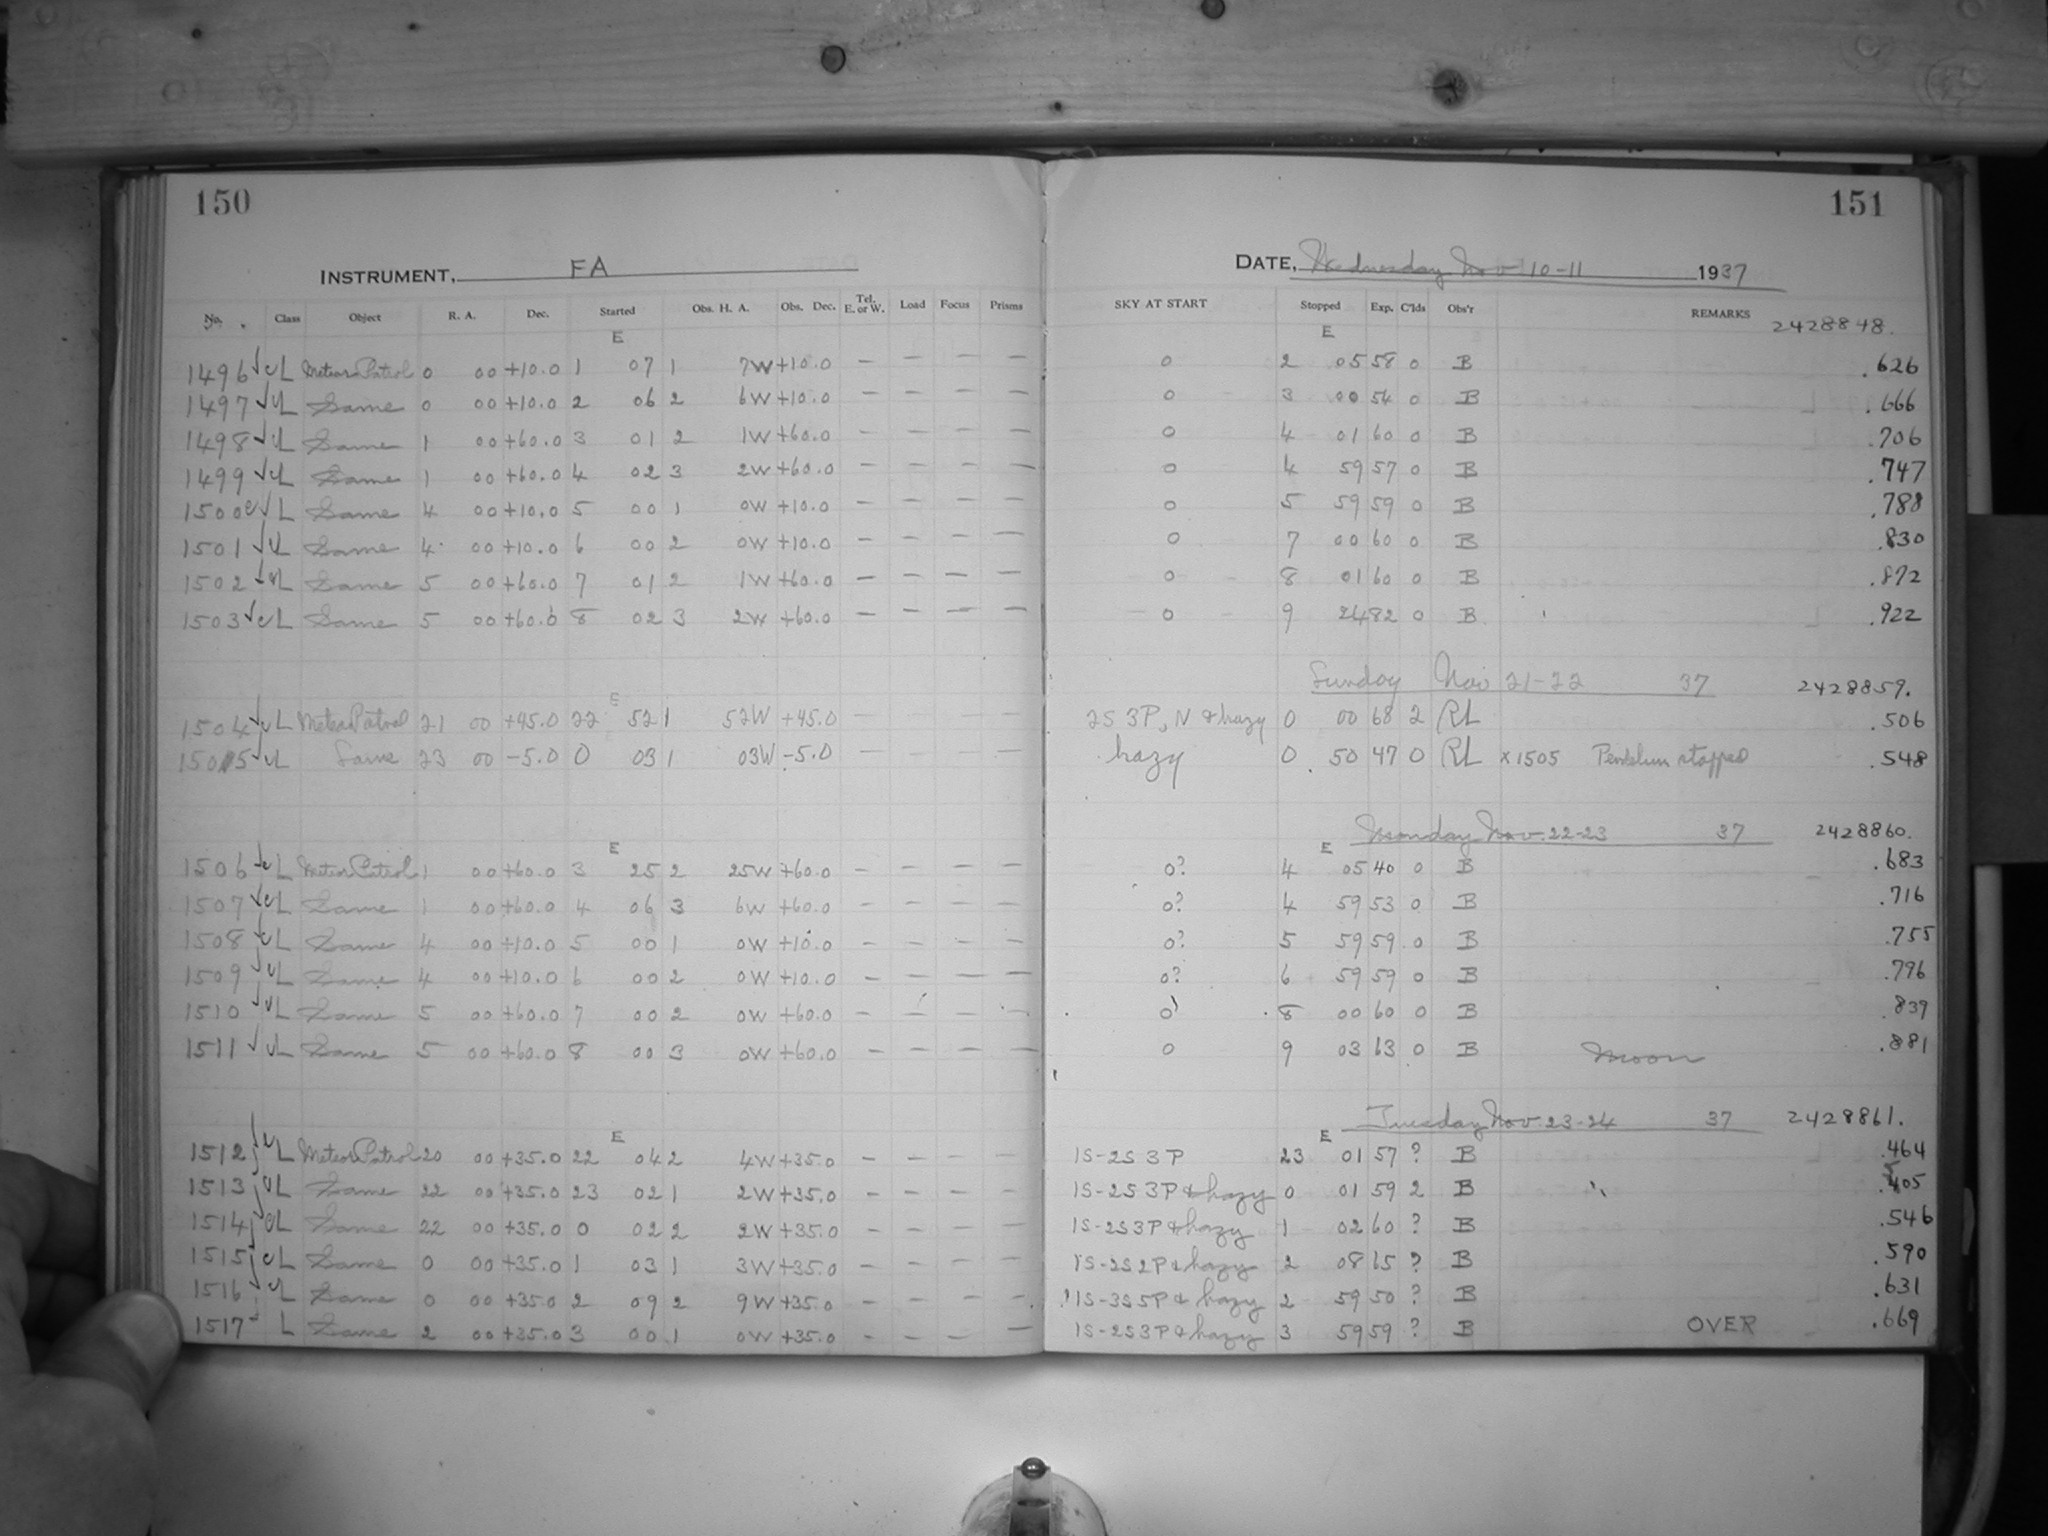 150
151
INSTRUMENT, FA
DATE, Wednesday Nov 10-11 1937
No. Class Object R. A. Dec. Started Obs. H. A. Obs. Dec. Tel. E. or W. Load Focus Prisms SKY AT START Stopped Exp. C'lds Obs'r REMARKS 2428848.
E E
1496 √ c L Meteor Patrol 0 00 +10.0 1 07 1 7W +10.0 — — — — 0 2 05 58 0 B .626
1497 √ c L Same 0 00 +10.0 2 06 2 6W +10.0 — — — — 0 3 00 54 0 B .666
1498 √ c L Same 1 00 +60.0 3 01 2 1W +60.0 — — — — 0 4 01 60 0 B .706
1499 √ c L Same 1 00 +60.0 4 02 3 2W +60.0 — — — — 0 4 59 57 0 B .747
1500 c √ L Same 4 00 +10.0 5 00 1 0W +10.0 — — — — 0 5 59 59 0 B .788
1501 √ c L Same 4 00 +10.0 6 00 2 0W +10.0 — — — — 0 7 00 60 0 B .830
1502 √ c L Same 5 00 +60.0 7 01 2 1W +60.0 — — — — 0 8 01 60 0 B .872
1503 √ c L Same 5 00 +60.0 8 02 3 2W +60.0 — — — — 0 9 24 82 0 B .922
Sunday Nov 21-22 37 2428859.
E
1504 √ c L Meteor Patrol 21 00 +45.0 22 52 1 52W +45.0 — — — — 2S 3P, N & hazy 0 00 68 2 RL .506
1505 √ c L Same 23 00 -5.0 0 03 1 03W -5.0 — — — — hazy 0 50 47 0 RL x1505 Pendelum stopped .548
Monday Nov. 22-23 37 2428860.
E E
1506 √ c L Meteor Patrol 1 00 +60.0 3 25 2 25W +60.0 — — — — 0? 4 05 40 0 B .683
1507 √ c L Same 1 00 +60.0 4 06 3 6W +60.0 — — — — 0? 4 59 53 0 B .716
1508 √ c L Same 4 00 +10.0 5 00 1 0W +10.0 — — — — 0? 5 59 59 0 B .755
1509 √ c L Same 4 00 +10.0 6 00 2 0W +10.0 — — — — 0? 6 59 59 0 B .796
1510 √ c L Same 5 00 +60.0 7 00 2 0W +60.0 — — — — 0 8 00 60 0 B .839
1511 √ c L Same 5 00 +60.0 8 00 3 0W +60.0 — — — — 0 9 03 63 0 B Moon .881
Tuesday Nov. 23-24 37 2428861.
E E
1512 √ c L Meteor Patrol 20 00 +35.0 22 04 2 4W +35.0 — — — — 1S-2S 3P 23 01 57 ? B .464
1513 √ c L Same 22 00 +35.0 23 02 1 2W +35.0 — — — — 1S-2S 3P & hazy 0 01 59 2 B .505
1514 √ c L Same 22 00 +35.0 0 02 2 2W +35.0 — — — — 1S-2S 3P & hazy 1 02 60 ? B .546
1515 √ c L Same 0 00 +35.0 1 03 1 3W +35.0 — — — — 1S-2S 2P & hazy 2 08 65 ? B .590
1516 √ c L Same 0 00 +35.0 2 09 2 9W +35.0 — — — — 1S-3S 5P & hazy 2 59 50 ? B .631
1517 L Same 2 00 +35.0 3 00 1 0W +35.0 — — — — 1S-2S 3P & hazy 3 59 59 ? B OVER .669